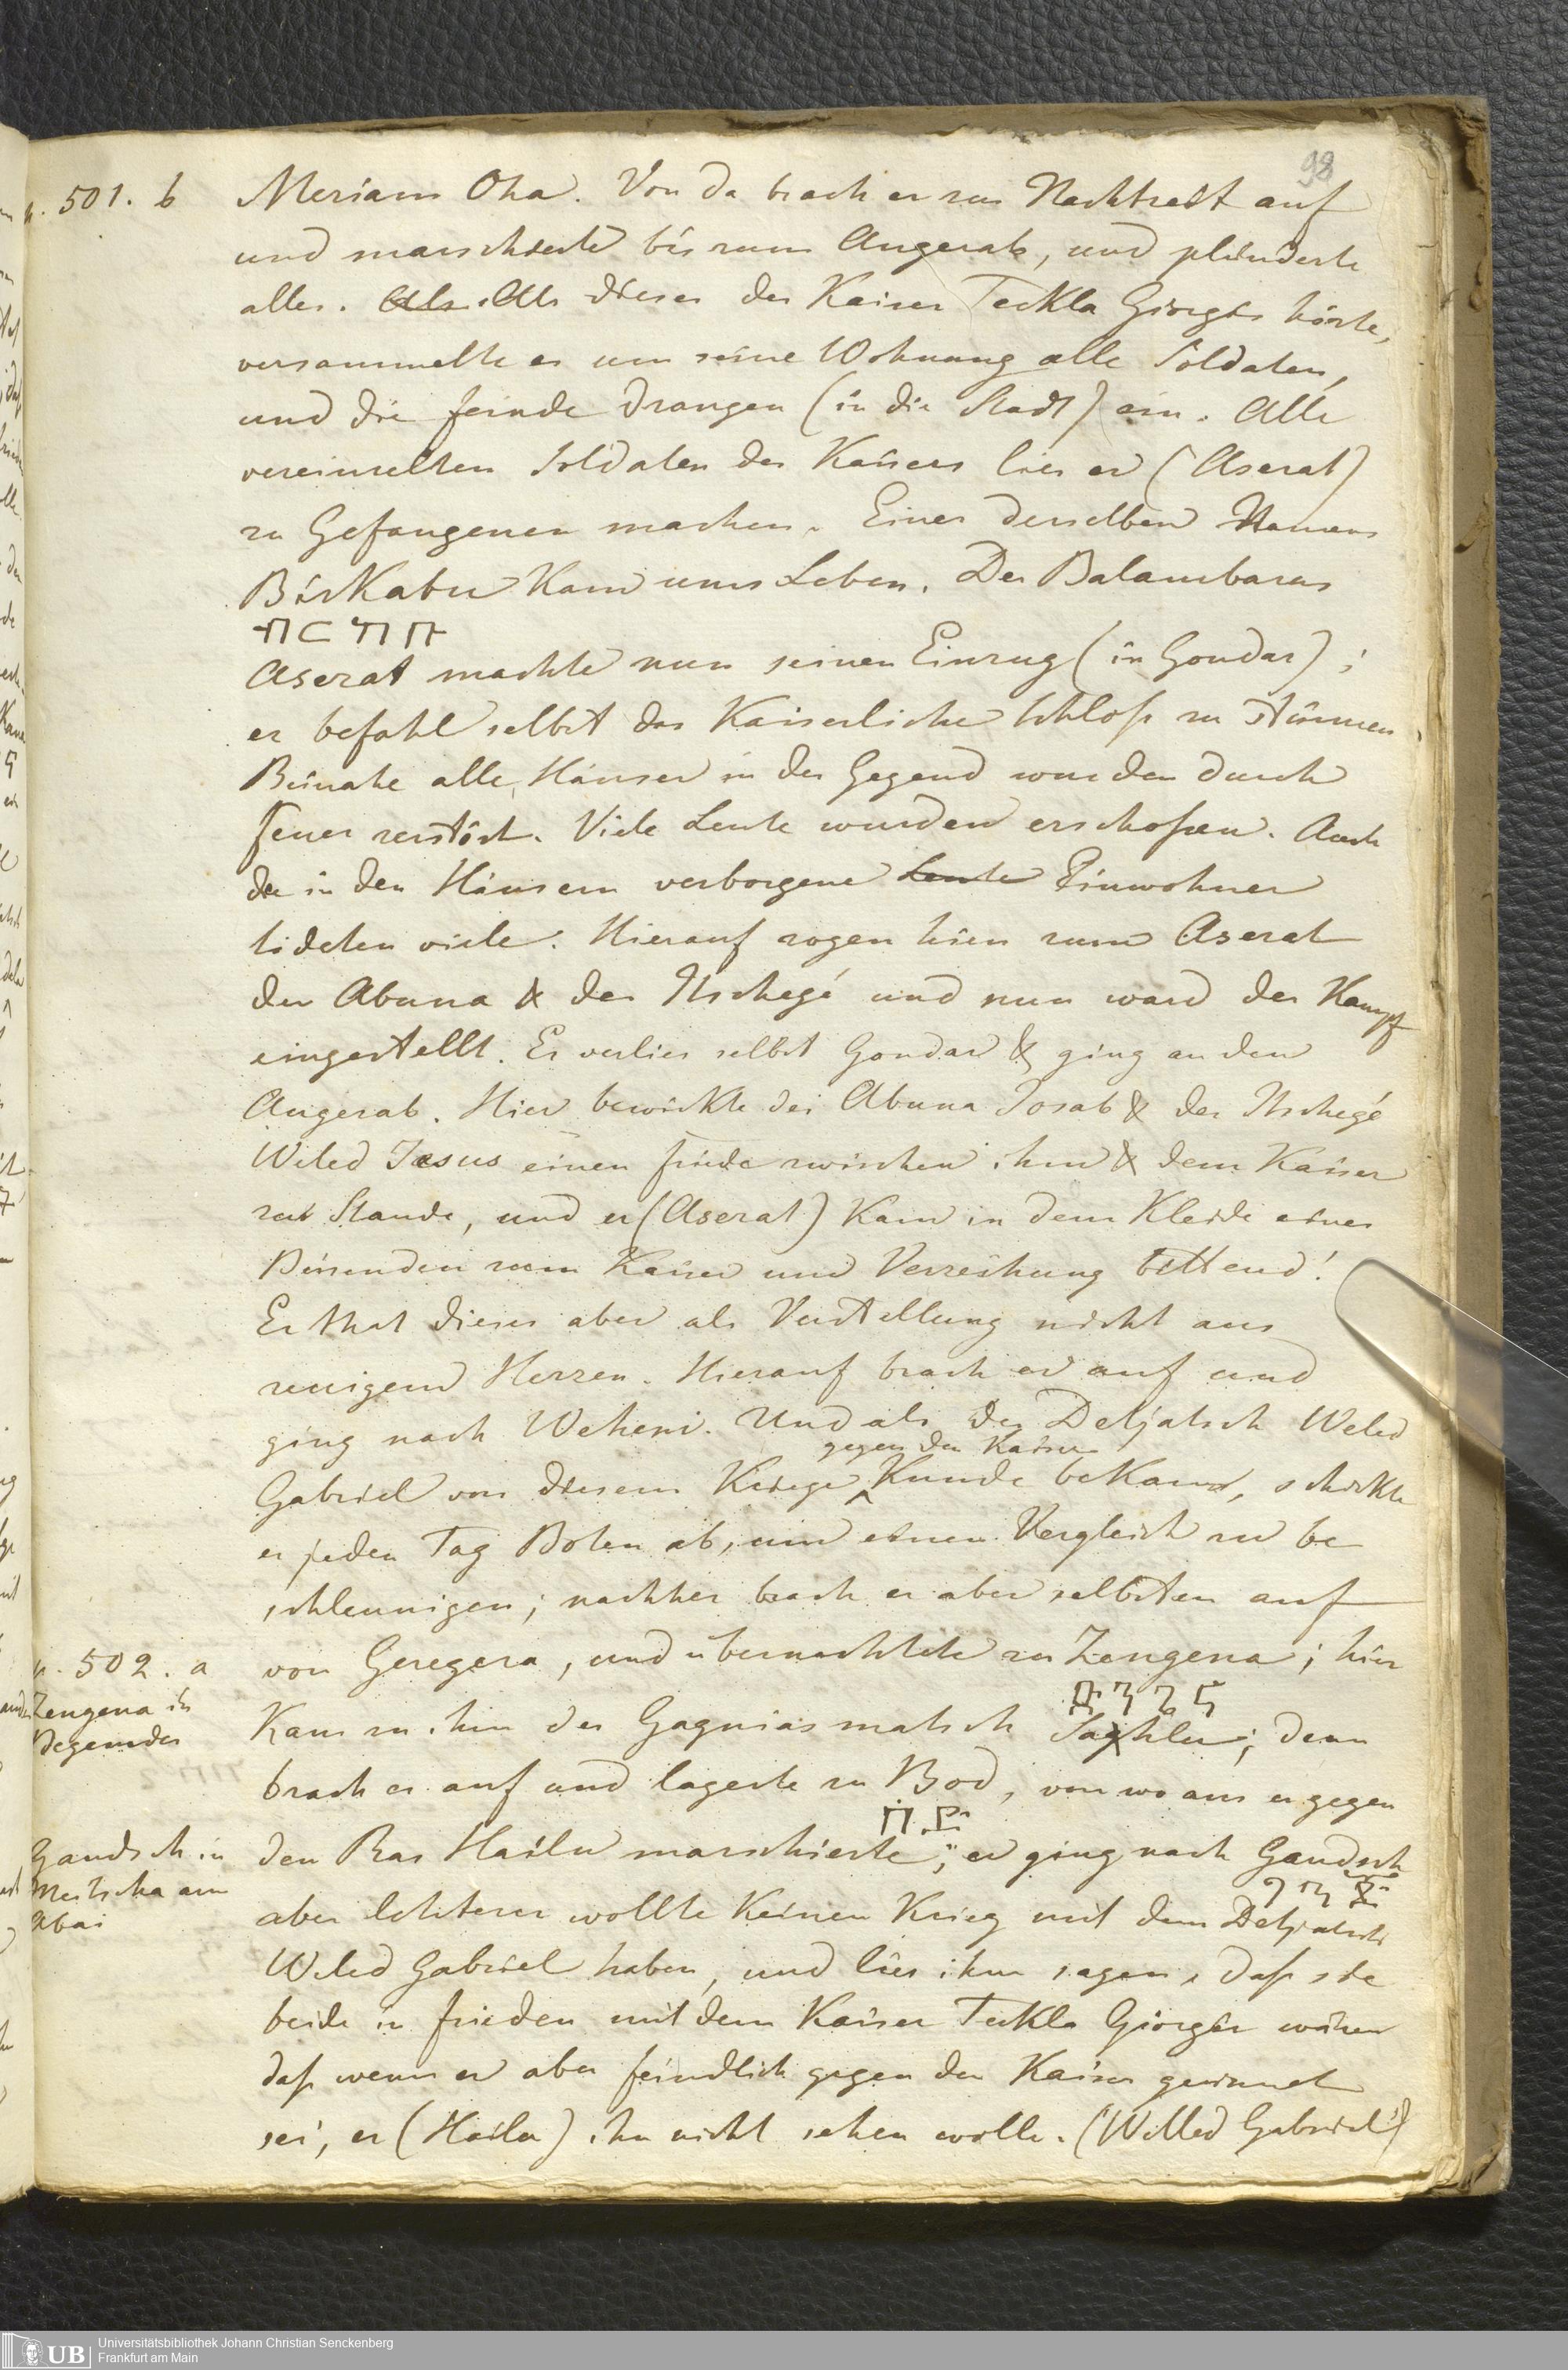 98
p. 501. b Meriam Oha. Von da brach er zur Nachtzeit auf
und marschierte bis zum Angerab, und plünderte
alles. Als Als dieses der Kaiser Teckla Giorgis hörte,
versammelte er um seine Wohnung alle Soldaten,
und die feinde drangen (in die Stadt) ein. Alle
vereinzelten Soldaten des Kaisers lies er (Aserat)
zu Gefangenen machen. Einer derselben Namens
BirKabu Kam ums Leben. Der Balambaras
ቢርካቡ
Aserat machte nun seinen Einzug (in Gondar);
er befahl selbst das Kaiserliche Schloß zu stürmen.
Beinahe alle Häuser in der Gegend wurden durch
feuer zerstört. Viele Leute wurden erschoßen. Auch
die in den Häusern verborgene Leute Einwohner
lideten viele. Hierauf zogen hien zum Aserat
der Abuna & der Itschegé und nun ward der Kampf
eingestellt. Er verlies selbst Gondar & ging an den
Angerab. Hier bewirkte der Abuna Josab & der Itschegé
Weled Jesus einen friede zwischen ihm & dem Kaiser
zu Stande, und er (Aserat) Kam in dem Kleide eines
Büsenden zum Kaiser und Verzeihung bittend!
Er that dieses aber als Verstellung nicht aus
reuigem Herzen. Hierauf brach er auf und
ging nach Weheni. Und als der Detjatsch Weled
gegen den Kaiser
Gabriel von diesem Kriege Kunde beKam, schickte
er jeden Tag Boten ab, um einen Vergleich zu be
schleunigen; nachher brach er aber selbsten auf
p. 502. a von Geregera, und übernachtete zu Zengena; hier
Zengena in
Begemder
ዘንገና
Kam zu ihm der Gagniasmatsch Saghlu; dann
brach er auf und lagerte zu Bod, von wo aus er gegen
ቦድ
den Ras Hailu marschierte; er ging nach Gandsch
Gandsch in
Meitscha am
Abai
ጋንጅ
aber letzterer wollte Keinen Krieg mit dem Detjatsch
Weled Gabriel haben, und lies ihm sagen, daß sie
beide in frieden mit dem Kaiser Teckla Giorgis wären
daß wenn er aber feindlich gegen den Kaiser gesinnet
sei, er (Hailu) ihn nicht sehen wolle. (Welled Gabriel)
UB Universitätsbibliothek Johann Christian Senckenberg
Frankfurt am Main